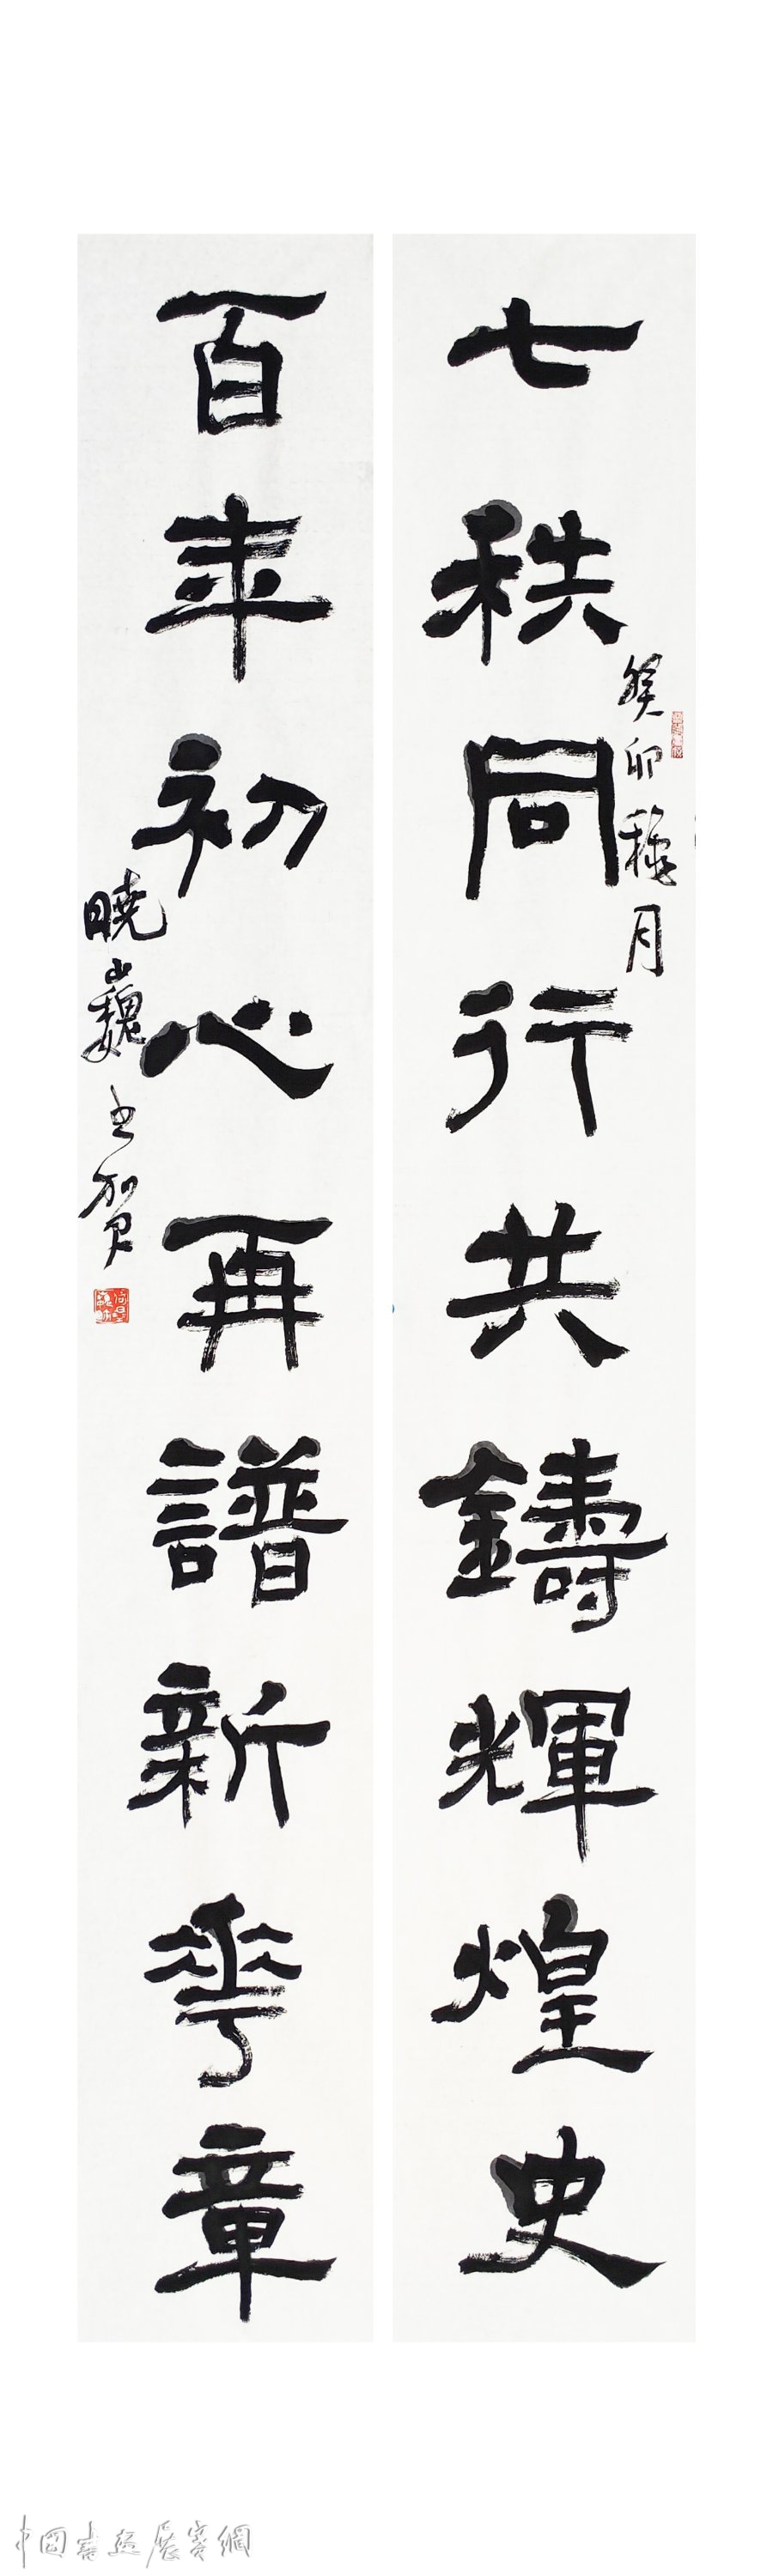 七秩同行共鑄輝煌史
癸卯穐月
百年初心再譜新華章
曉巍书贺
中國書畫展賽網